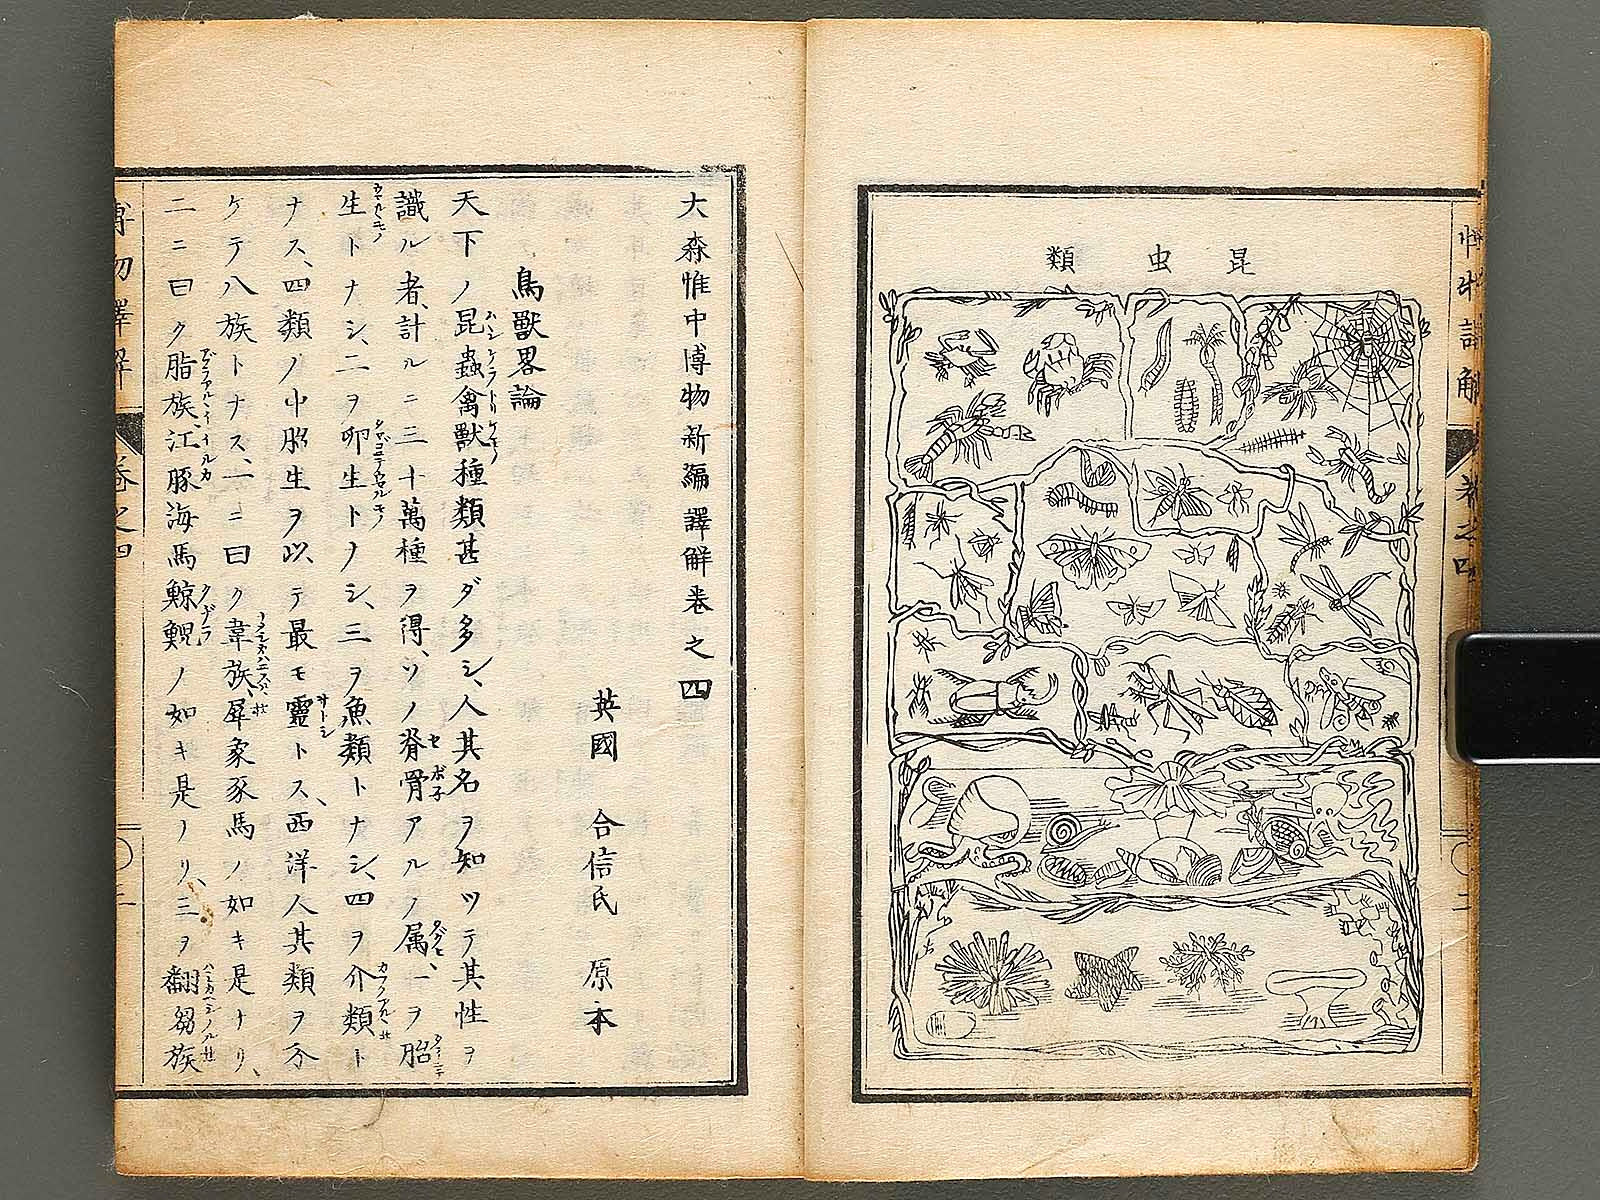 昆虫類
大森惟中博物新編譯解巻之四
英國 合信氏 原本
鳥獸畧論
天下ノ昆蟲禽獸種類甚ダ多シ、人其名ヲ知ツテ其性ヲ
識ル者、計ルニ三十萬種ヲ得、ソノ脊骨アルノ属、一ヲ胎
生トナシ、二ヲ卵生トナシ、三ヲ魚類トナシ、四ヲ介類ト
ナス、四類ノ中胎生ヲ以テ最モ靈トス、西洋人其類ヲ分
ケテ八族トナス、一ニ曰ク韋族、犀象豕馬ノ如キ是ナリ、
二ニ曰ク脂族、江豚海馬鯨鯢ノ如キ是ナリ、三ヲ翻翅族
博物譯解 巻之四